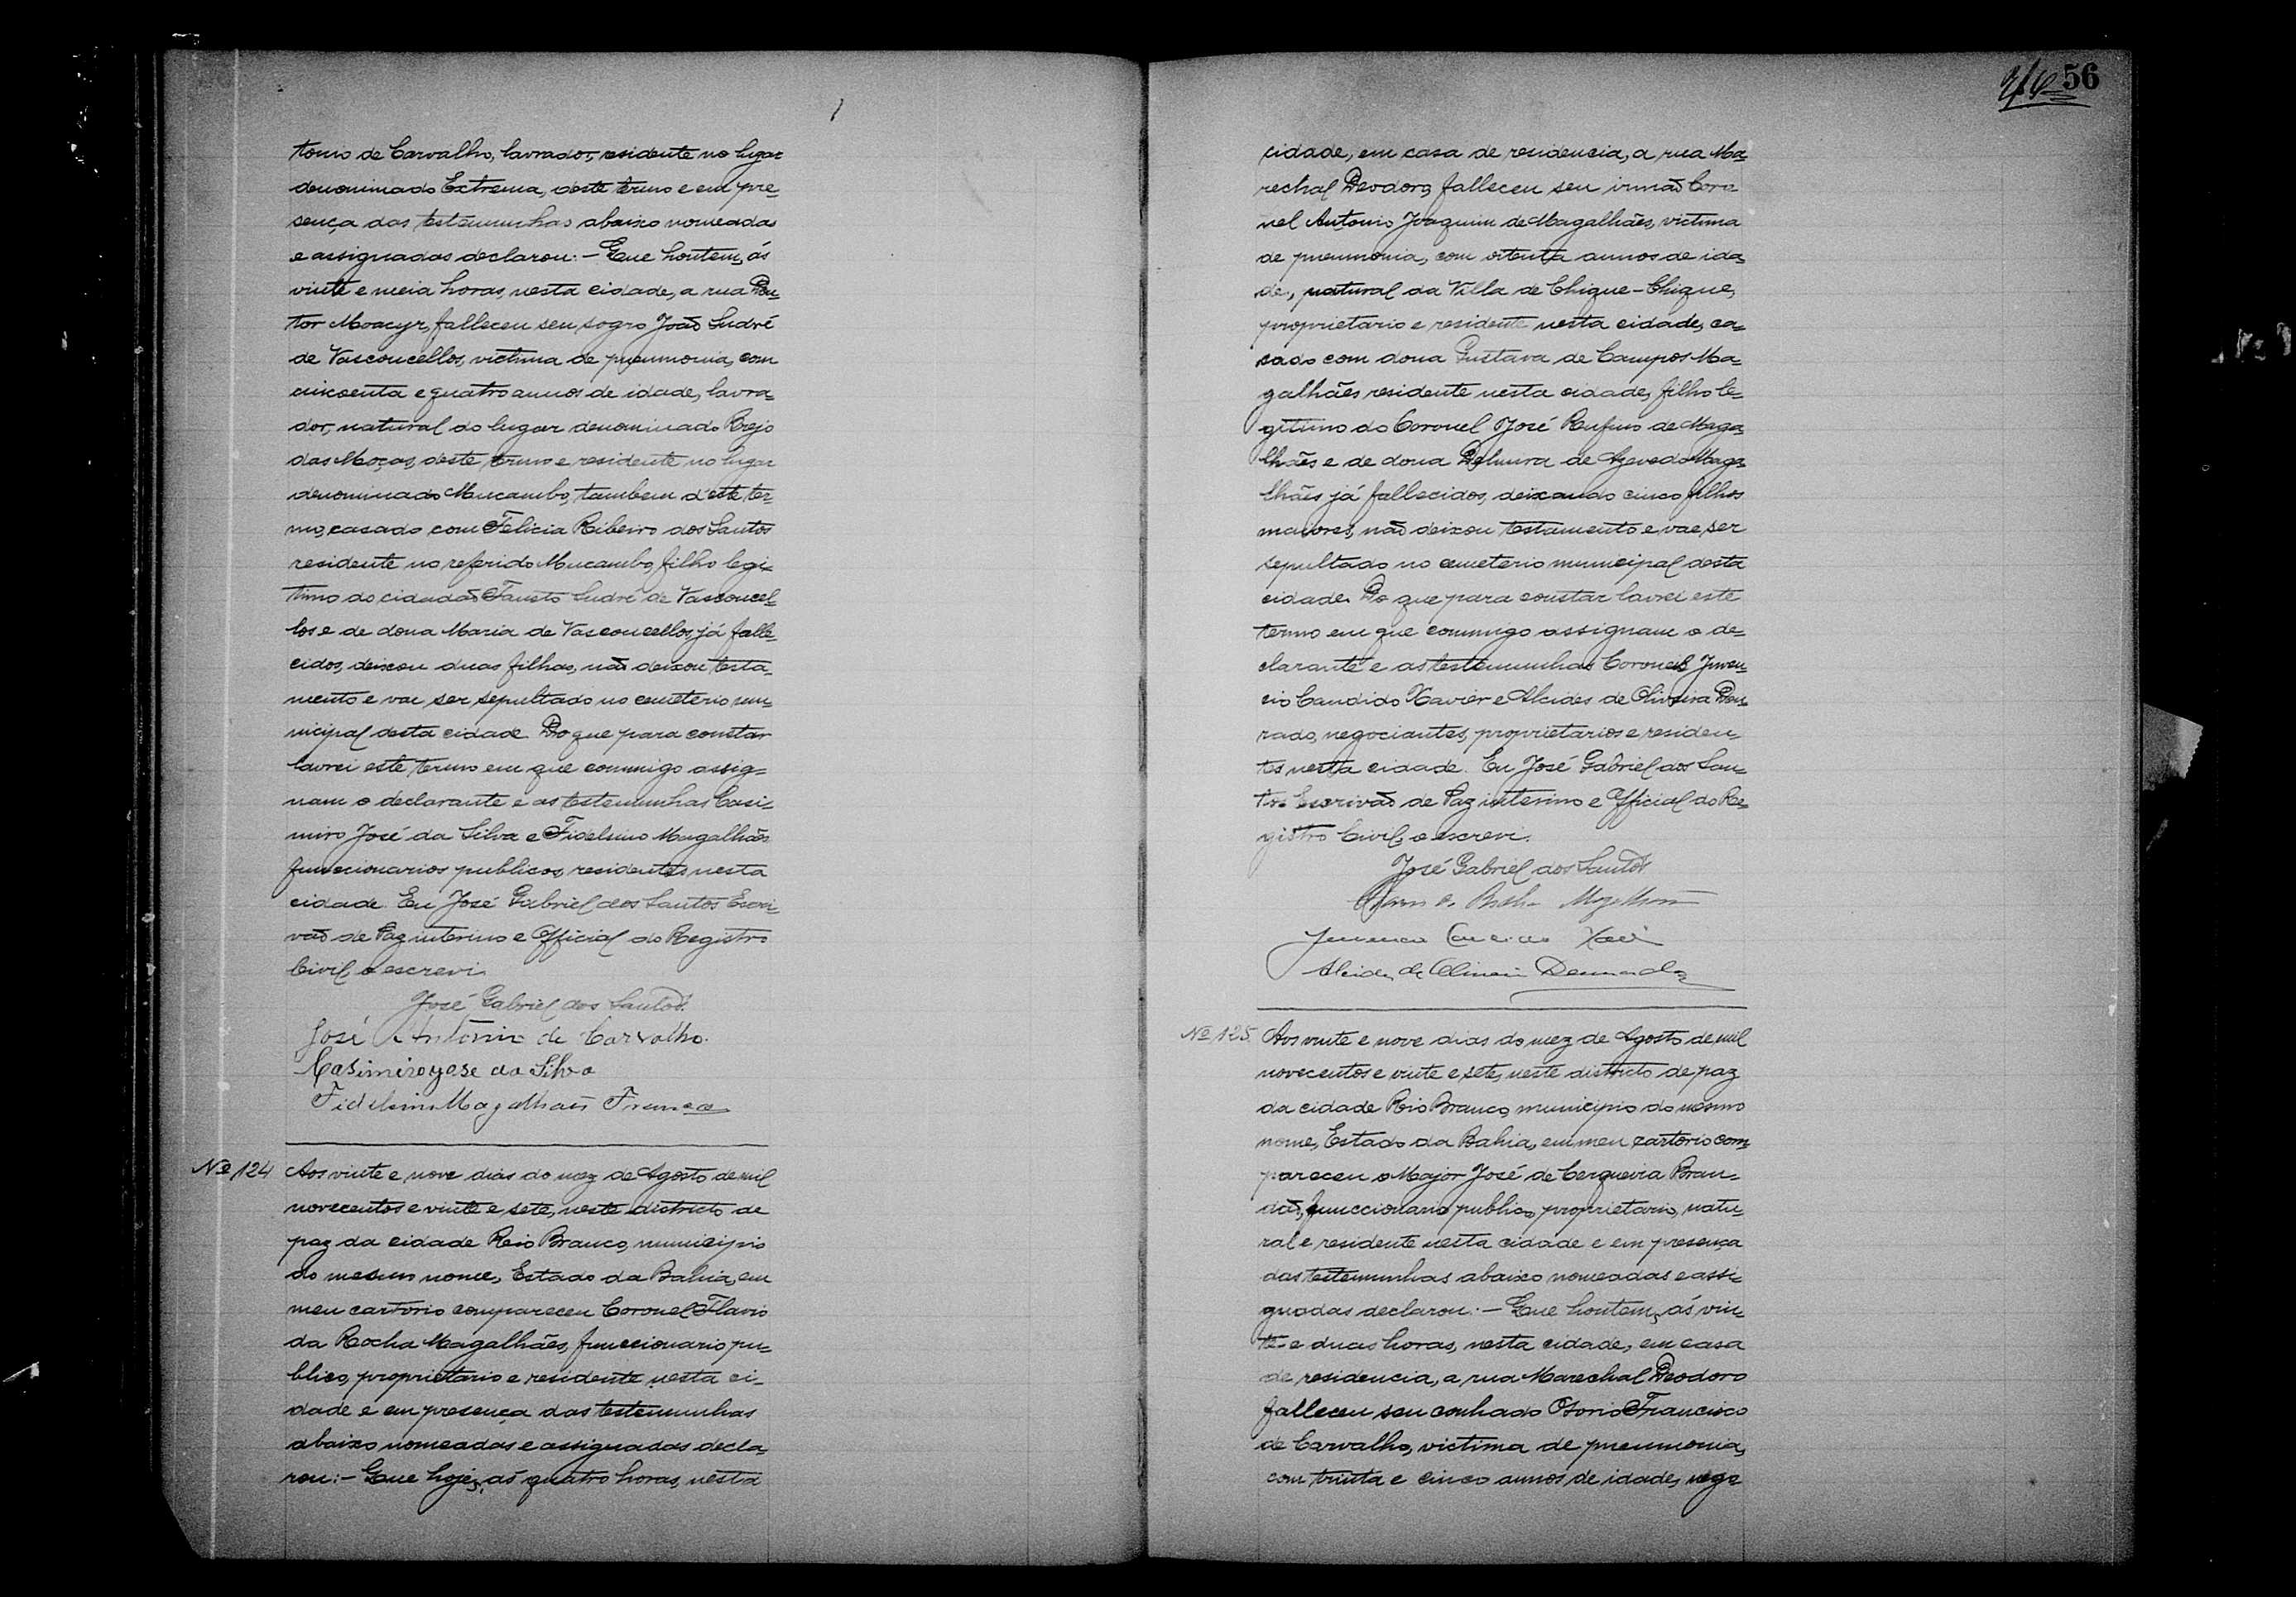 tonio de Carvalho, lavrador, residente no lugar
denominado Extrema, deste termo e em pre-
sença das testemunhas abaixo nomeadas
e assignadas declarou:- Que hontem, ás
vinte e meia horas, nesta cidade, a rua Dou-
tor Moacyr, falleceu seu sogro João Sudré
de Vasconcellos, victima de pneumonia, com
cincoenta e quatro annos de idade, lavra-
dor, natural do lugar denominado Brejo
das Moças, deste termo e residente no lugar
denominado Mucambo, tambem d'este ter-
mo, casado com Felicia Ribeiro dos Santos
residente no referido Mucambo, filho legi-
timo do cidadão Fausto Sudré de Vasconcel-
los e de dona Maria de Vasconcellos, já falle-
cidos, deixou duas filhas, não deixou testa-
mento e vae ser sepultado no cemeterio mu-
nicipal desta cidade. Do que para constar
lavrei este termo em que commigo assig-
nam o declarante e as testemunhas Casi-
miro José da Silva e Fidelsino Magalhães
funccionarios publicos, residentes nesta
cidade. Eu José Gabriel dos Santos Escri-
vão de Paz interino e Official do Registro
Civil, o escrevi.
José Gabriel dos Santos.
José Antonio de Carvalho.
Casimiro yose da Silva
Magalhães França
Nº 124 Aos vinte e nove dias do mez de Agosto de mil
novecentos e vinte e sete, neste districto de
paz da cidade Rio Branco, municipio
do mesmo nome, Estado da Bahia, em
meu cartorio compareceu Coronel Flavio
da Rocha Magalhães, funccionario pu-
blico, proprietario e residente nesta ci-
dade e em presença das testemunhas
abaixo nomeadas e assignadas decla-
rou:- Que hoje, as quatro horas, nesta
56
cidade, em casa de residencia, a rua Ma-
rechal Deodoro, falleceu seu irmão Coro-
nel Antonio Joaquim de Magalhães, victima
de pneumonia, com oitenta annos de ida-
de, natural da Villa de Chique-Chique,
proprietario e residente nesta cidade, ca-
sado com dona Gustava de Campos Ma-
galhães residente nesta cidade, filho le-
gitimo do Coronel José Rufino de Maga-
lhães e de dona de Azevedo Maga-
lhães já fallecidos, deixando cinco filhos
maiores, não deixou testamento e vae ser
sepultado no cemeterio municipal desta
cidade. Do que para constar lavrei este
termo em que commigo assignam o de-
clarante e as testemunhas Coronel Juven-
cio Candido Xavier e Alcides de Oliveira Dou-
rado, negociantes, proprietarios e residen-
tes nesta cidade. Eu José Gabriel dos San-
tos Escrivão de Paz interino e Official do Re-
gistro Civil, o escrevi.
José Gabriel dos Santos
Alcides de Oliveira Dourado
Nº 125. Aos vinte e nove dias do mez de Agosto de mil
novecentos e vinte e sete, neste districto de paz
da cidade Rio Branco, municipio do mesmo
nome, Estado da Bahia, em meu cartorio com-
pareceu o Major José de Cerqueira Bran-
dão, funccionario publico, proprietario, natu-
ral e residente nesta cidade e em presença
das testemunhas abaixo nomeadas e assi-
gnadas declarou:- Que hontem, ás vin-
te e duas horas, nesta cidade, em casa
de residencia, a rua Marechal Deodoro
falleceu seu cunhado Osorio Francisco
de Carvalho, victima de pneumonia,
com trinta e cinco annos de idade, nego-